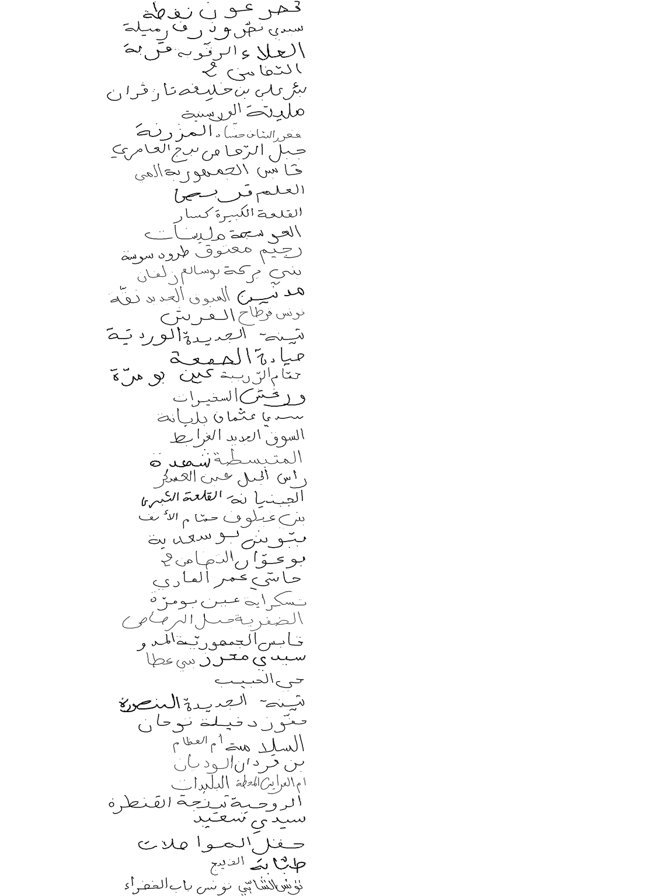 قصر عون نفطة
سيدي نصر ونزف رميلة
العلاء الرقوبة قرية
التضامن 2
بئر علي بن خليفة تازقران
مليتة الورسنية
المزرنة
جبل الرصاص برج العامري
قابس الجمهورية
العلم
القلعة الكبيرة كسار
العوسجة وليسات
رجيم معتوق طرود سوسة
بني بركة بوسالم زلفان
مدنين السوق الجديد نقة
تونس قرطاج العريش
تينة الجديدة الوردية
صيادة الجمعة
حمام الزريبة عين بومرة
ورغش السغيرات
سدي عثمان بليانة
السوق الجديد الغرابط
المتبسطة شعدة
راس الجبل عين العسكر
الجبنيانة القلعة الكبرى
بني عيلوف حمام الأنف
بتوينس بوسعدية
بوعوان الرصاص 2
حاسي عمر الهادي
تسكراية عين بومرة
الصخرية جبل الرصاص
قابس الجمهورية المدو
سيدي محرز سي عطا
حي الحبيب
تينة الجديدة المنصورة
معتوق دخيلة توجان
السلامة أم العظام
بن قردان الوديان
ام العرايس المحطة البليدات
الروحية تينجة القنطرة
سيدي سعيد
حفل المواصلات
طبابة
تونس الشابي تونس باب الخضراء